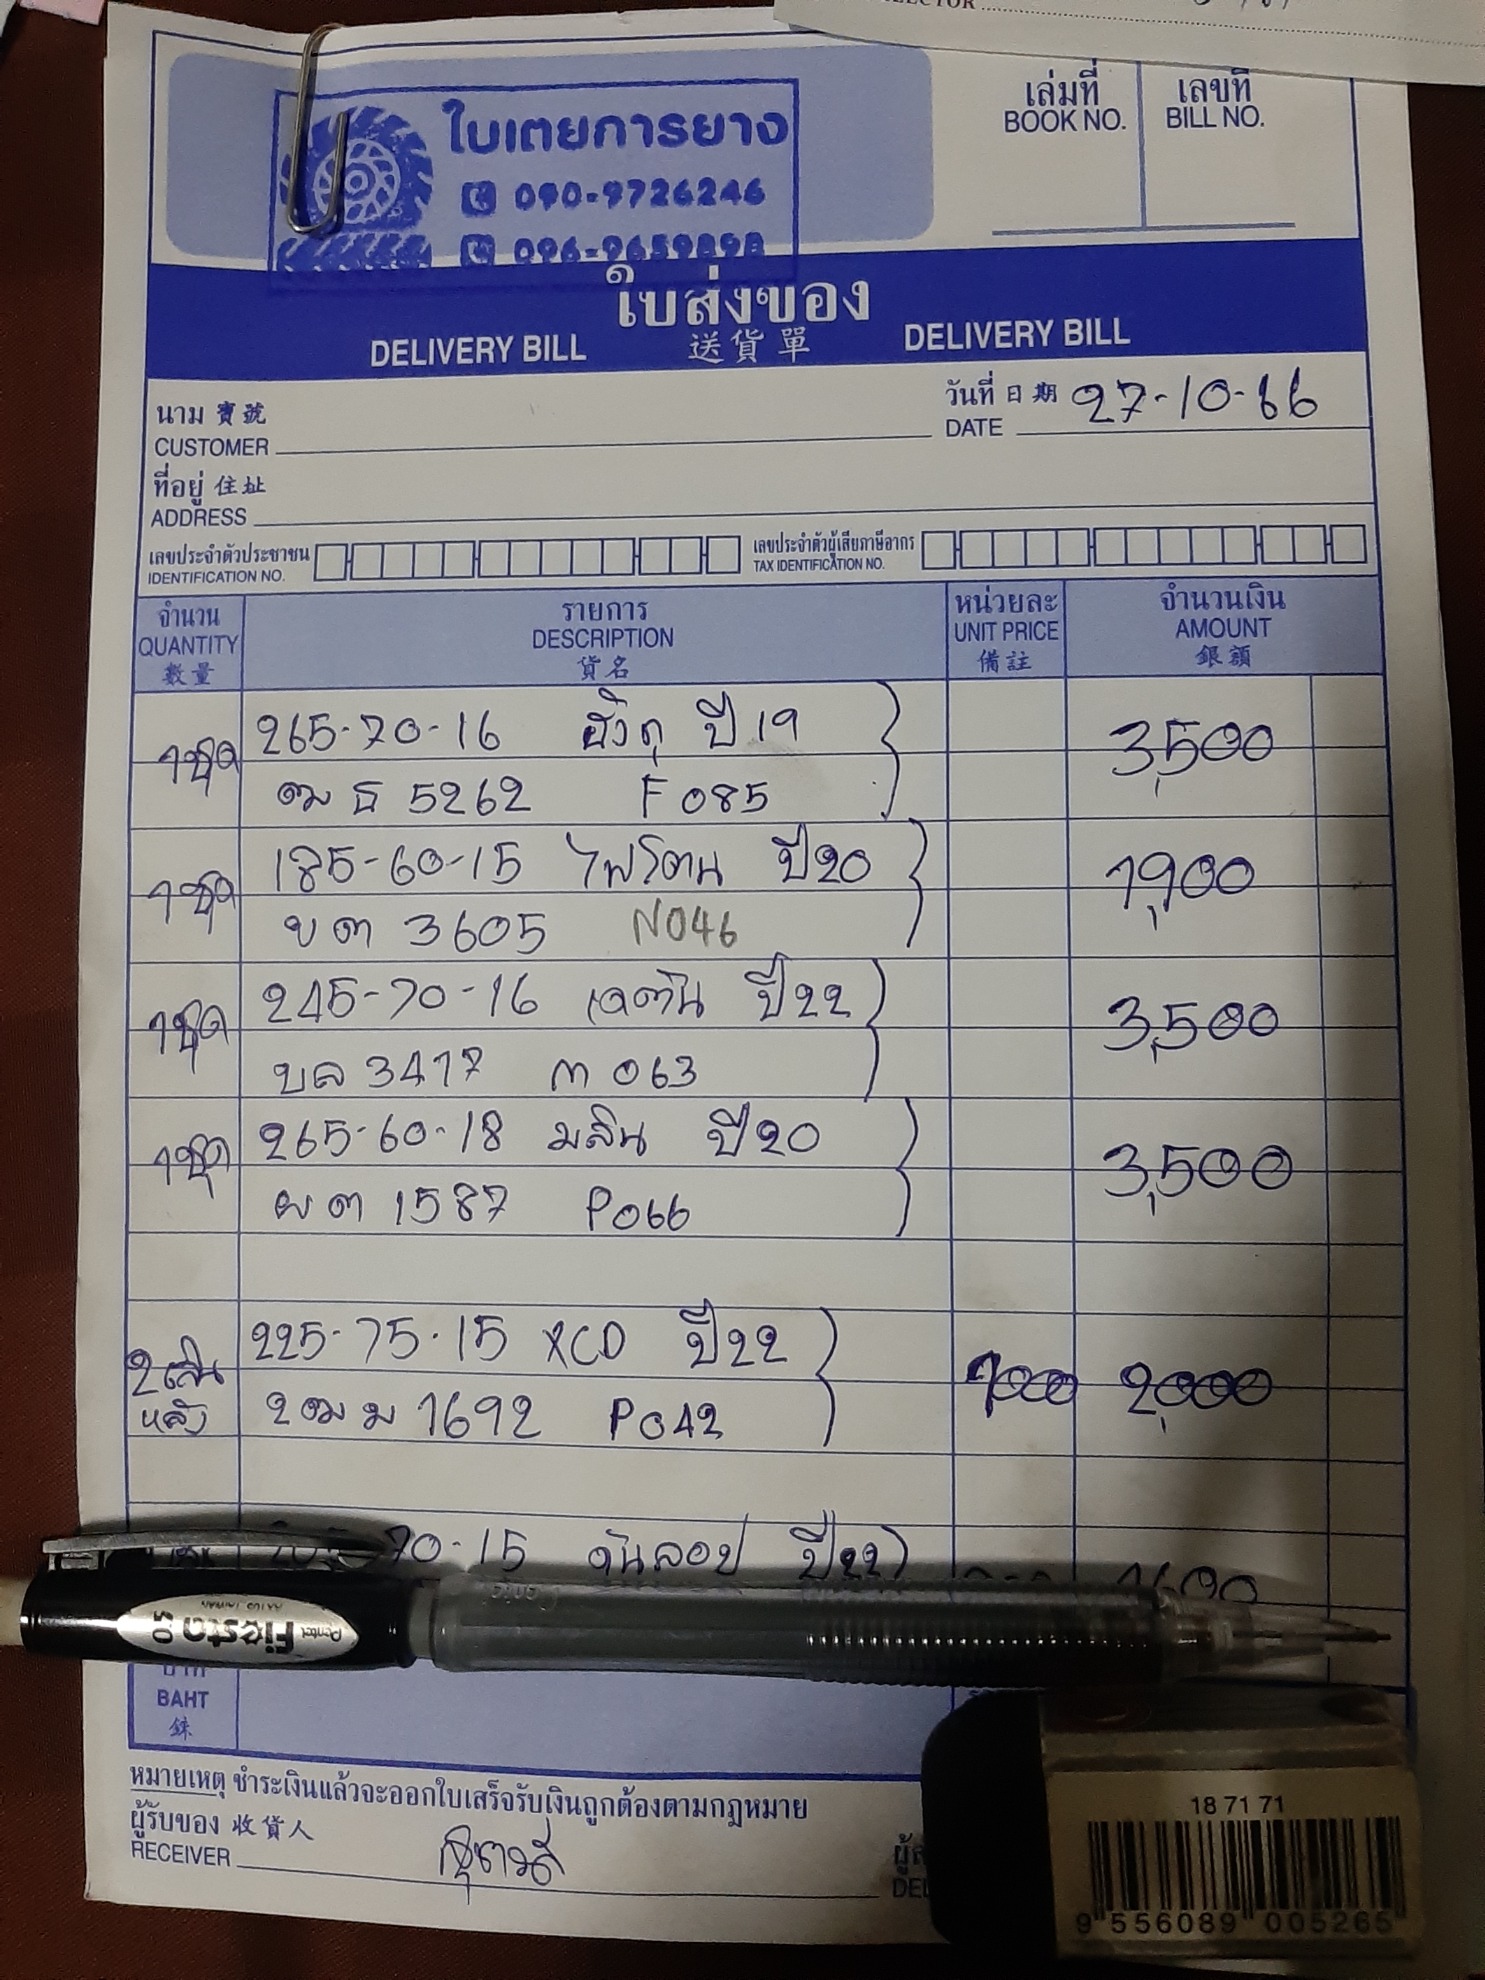 ใบเตยการยาง
090-9726246
096-9659898
เล่มที่ เลขที่
BOOK NO. BILL NO.
ใบส่งของ
DELIVERY BILL 送貨單 DELIVERY BILL
นาม 寶號 วันที่ 日期 27-10-66
CUSTOMER DATE
ที่อยู่ 住址
ADDRESS
เลขประจำตัวประชาชน เลขประจำตัวผู้เสียภาษีอากร
IDENTIFICATION NO. TAX IDENTIFICATION NO.
จำนวน รายการ หน่วยละ จำนวนเงิน
QUANTITY DESCRIPTION UNIT PRICE AMOUNT
數量 貨名 備註 銀額
1ชุด 265-70-16 ปี 19 3,500
ฒธ 5262 F085
1ชุด 185-60-15 ไพโตน ปี20 1,900
ขต 3605 N046
1ชุด 245-70-16 ปี22 3,500
บล 3417 ต 063
1ชุด 265-60-18 มสิน ปี20 3,500
ผต 1587 P066
2เส้น 225-75-15 XCD ปี22 1000 2,000
หลัง 2ฒม 1692 P042
70-15 ดันลอป ปี22
Pentel
Fiesta
0.5
บาท
BAHT
銖
หมายเหตุ ชำระเงินแล้วจะออกใบเสร็จรับเงินถูกต้องตามกฎหมาย
ผู้รับของ 收貨人
RECEIVER
18 71 71
9 556089 005265